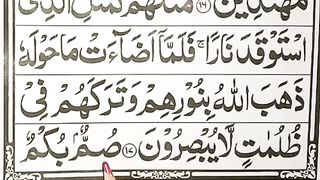 مُهْتَدِيْنَ ﴿۱۶﴾ مَثَلُهُمْ كَمَثَلِ الَّذِى
اسْتَوْقَدَ نَارًا ۚ فَلَمَّآ اَضَآءَتْ مَا حَوْلَهٗ
ذَهَبَ اللّٰهُ بِنُوْرِهِمْ وَتَرَكَهُمْ فِىْ
ظُلُمٰتٍ لَّا يُبْصِرُوْنَ ﴿۱۷﴾ صُمٌّۢ بُكْمٌ